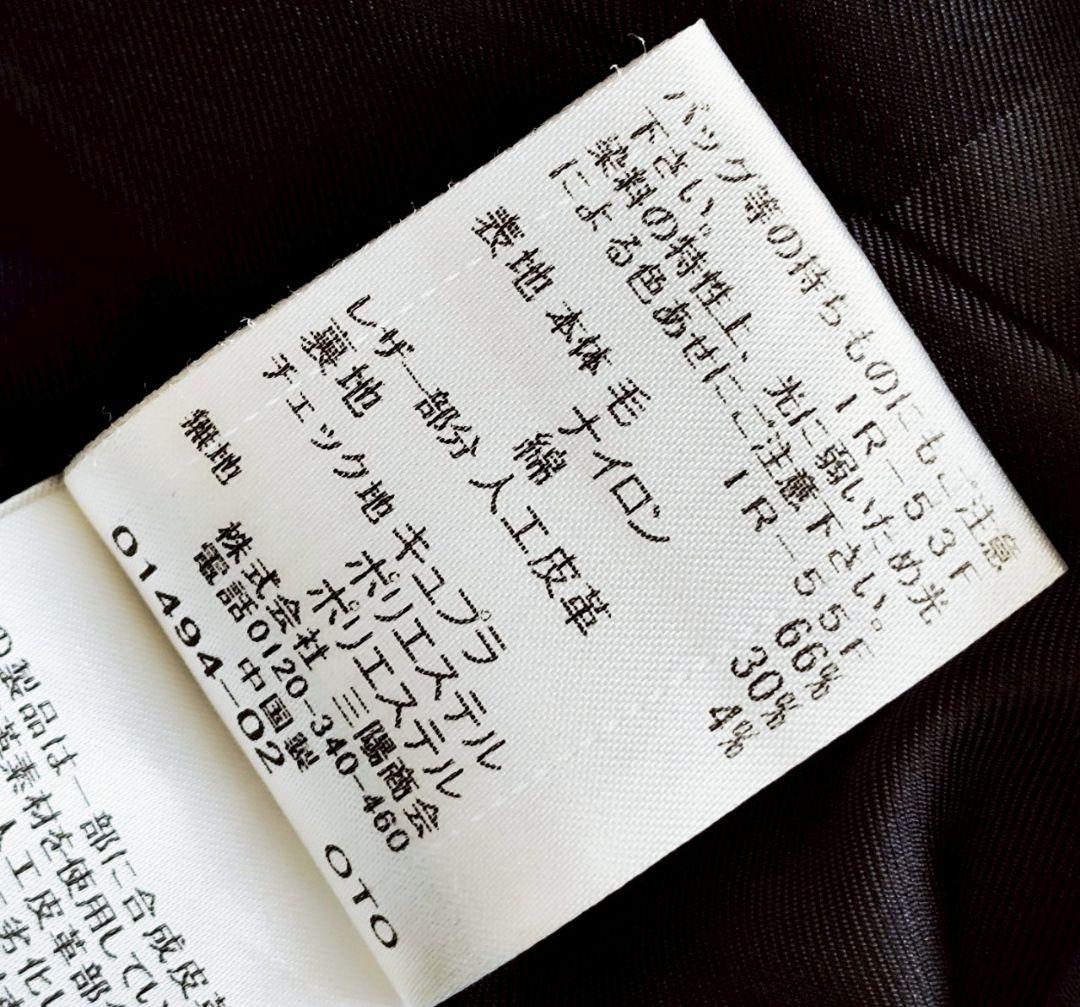 バック等の持ちものにもご注意
下さい。 IR-53F
染料の特性上、光に弱いため光
による色あせにご注意下さい。
IR-55F
表地 本体 毛 66%
ナイロン 30%
綿 4%
レザー部分 人工皮革
裏地
チェック地 キュプラ
ポリエステル
無地 ポリエステル
株式会社 三陽商会
電話0120-340-460
中国製
01494-02 OTO
の製品は一部に合成皮革
素材を使用してい
人工皮革部
劣化し